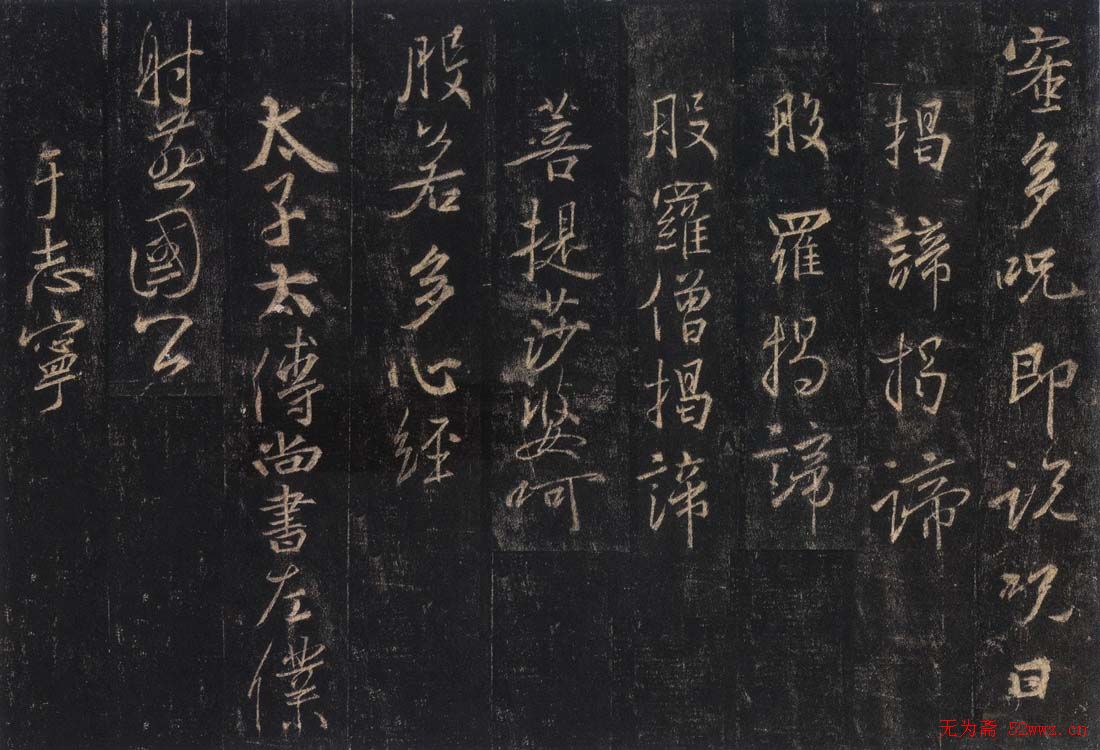 蜜多咒即说咒曰
揭諦揭諦
般羅揭諦
般羅僧揭諦
菩提莎婆呵
般若多心經
太子太傅尚書左僕
射燕國公
于志寧
无为斋 52wwz.cn